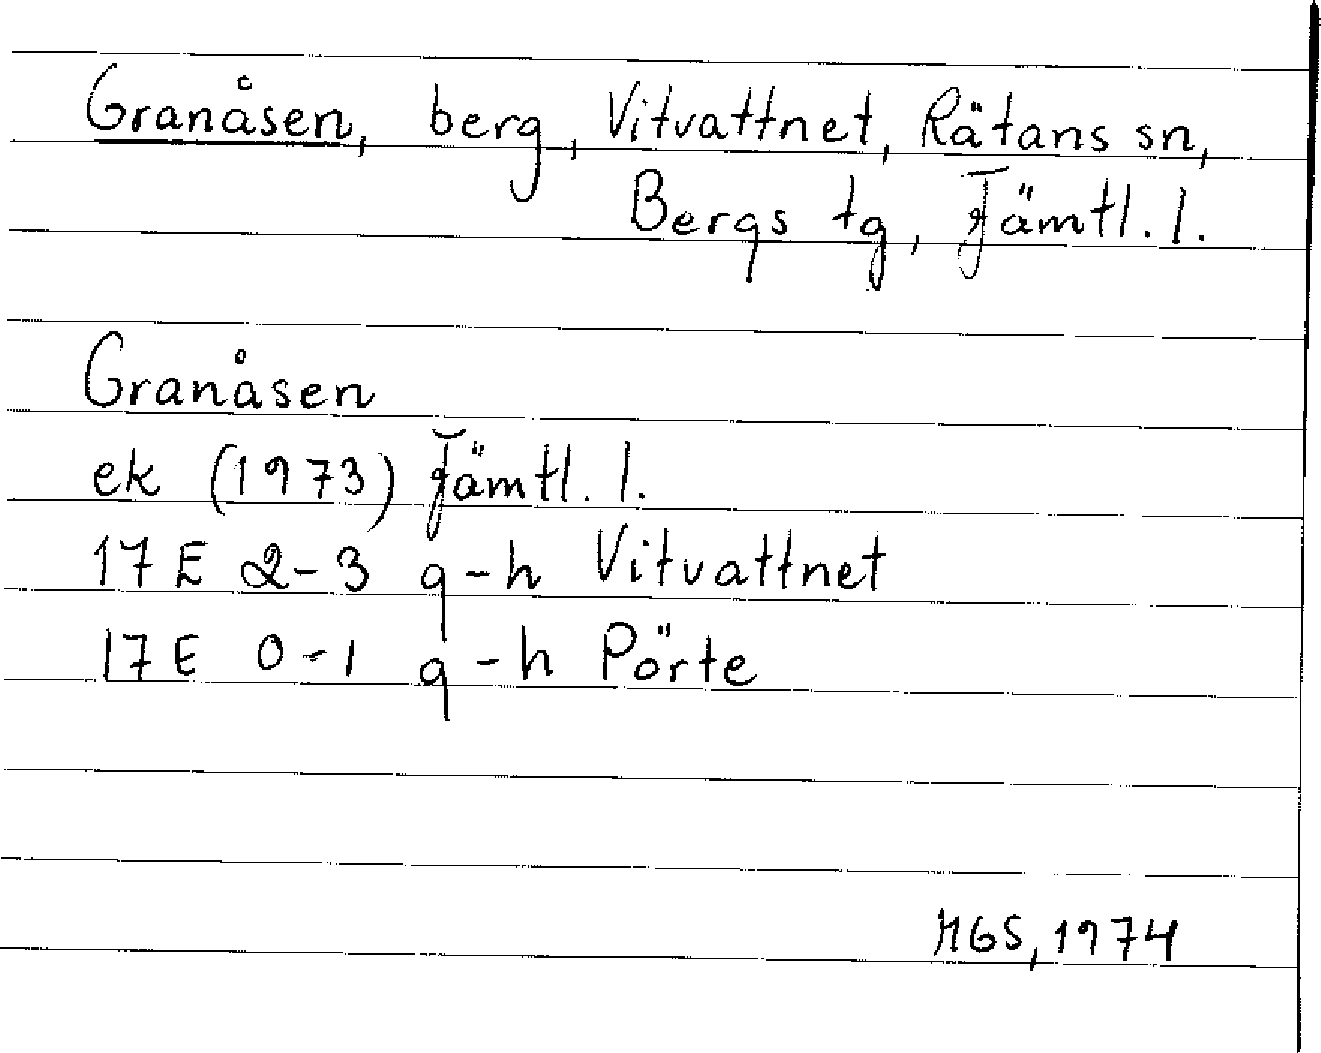 Granåsen, berg, Vitvattnet, Rätans sn,
Bergs tg, Jämtl. l.
Granåsen
ek (1973) Jämtl. l.
17 E 2-3 g-h Vitvattnet
17 E 0-1 g-h Pörte
MGS, 1974